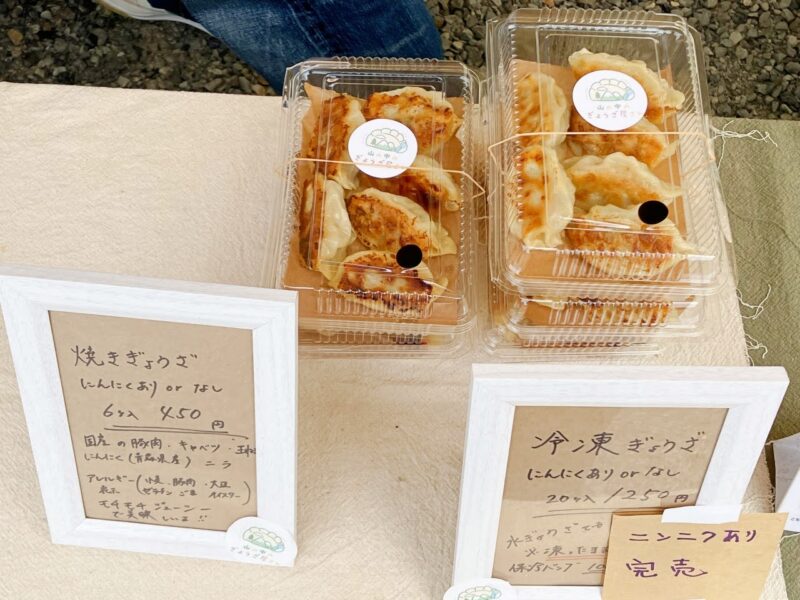 山の中の
ぎょうざ屋さん
山の中の
ぎょうざ屋さん
焼きぎょうざ
にんにくあり or なし
6ヶ入 450円
国産の豚肉・キャベツ・玉ねぎ
にんにく(青森県産) ニラ
アレルギー表示 (小麦・豚肉・大豆
ゼラチン ごま オイスター)
モチモチ ジューシー
で美味しいよ!!
山の中の
ぎょうざ屋さん
冷凍ぎょうざ
にんにくあり or なし
20ヶ入 1250円
水ぎょうざでも
冷凍のまま
保冷バッグ 10
ニンニクあり
完売